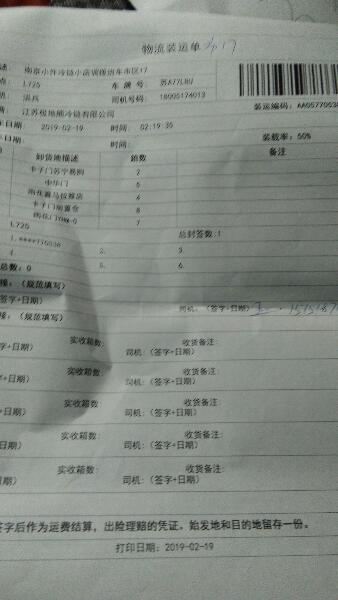 物流装运单
南京小件冷链小店调拨班车市区17
L725 车牌号: 苏A77L8U
司机号码: 18005174013
江苏极地熊冷链有限公司 装运编码: AA0577053
2019-02-19 时间: 02:19:35
日期: 时间: 装载率: 50%
卸货地描述 箱数 备注
卡子门苏宁易购 7
中华门 5
4
卡子门前置仓 8
7
L725 总封签数:1
1. 2. 3.
4. 5. 6.
总数: 0
接: (规范填写)
(签字+日期) 司机: (签字+日期)
接: (规范填写)
实收箱数: 收货备注:
字+日期) 司机: (签字+日期)
实收箱数: 收货备注:
字+日期) 司机: (签字+日期)
实收箱数: 收货备注:
字+日期) 司机: (签字+日期)
实收箱数: 收货备注:
字+日期) 司机: (签字+日期)
实收箱数: 收货备注:
字+日期) 司机: (签字+日期)
签字后作为运费结算，出险理赔的凭证。始发地和目的地留存一份。
打印日期: 2019-02-19